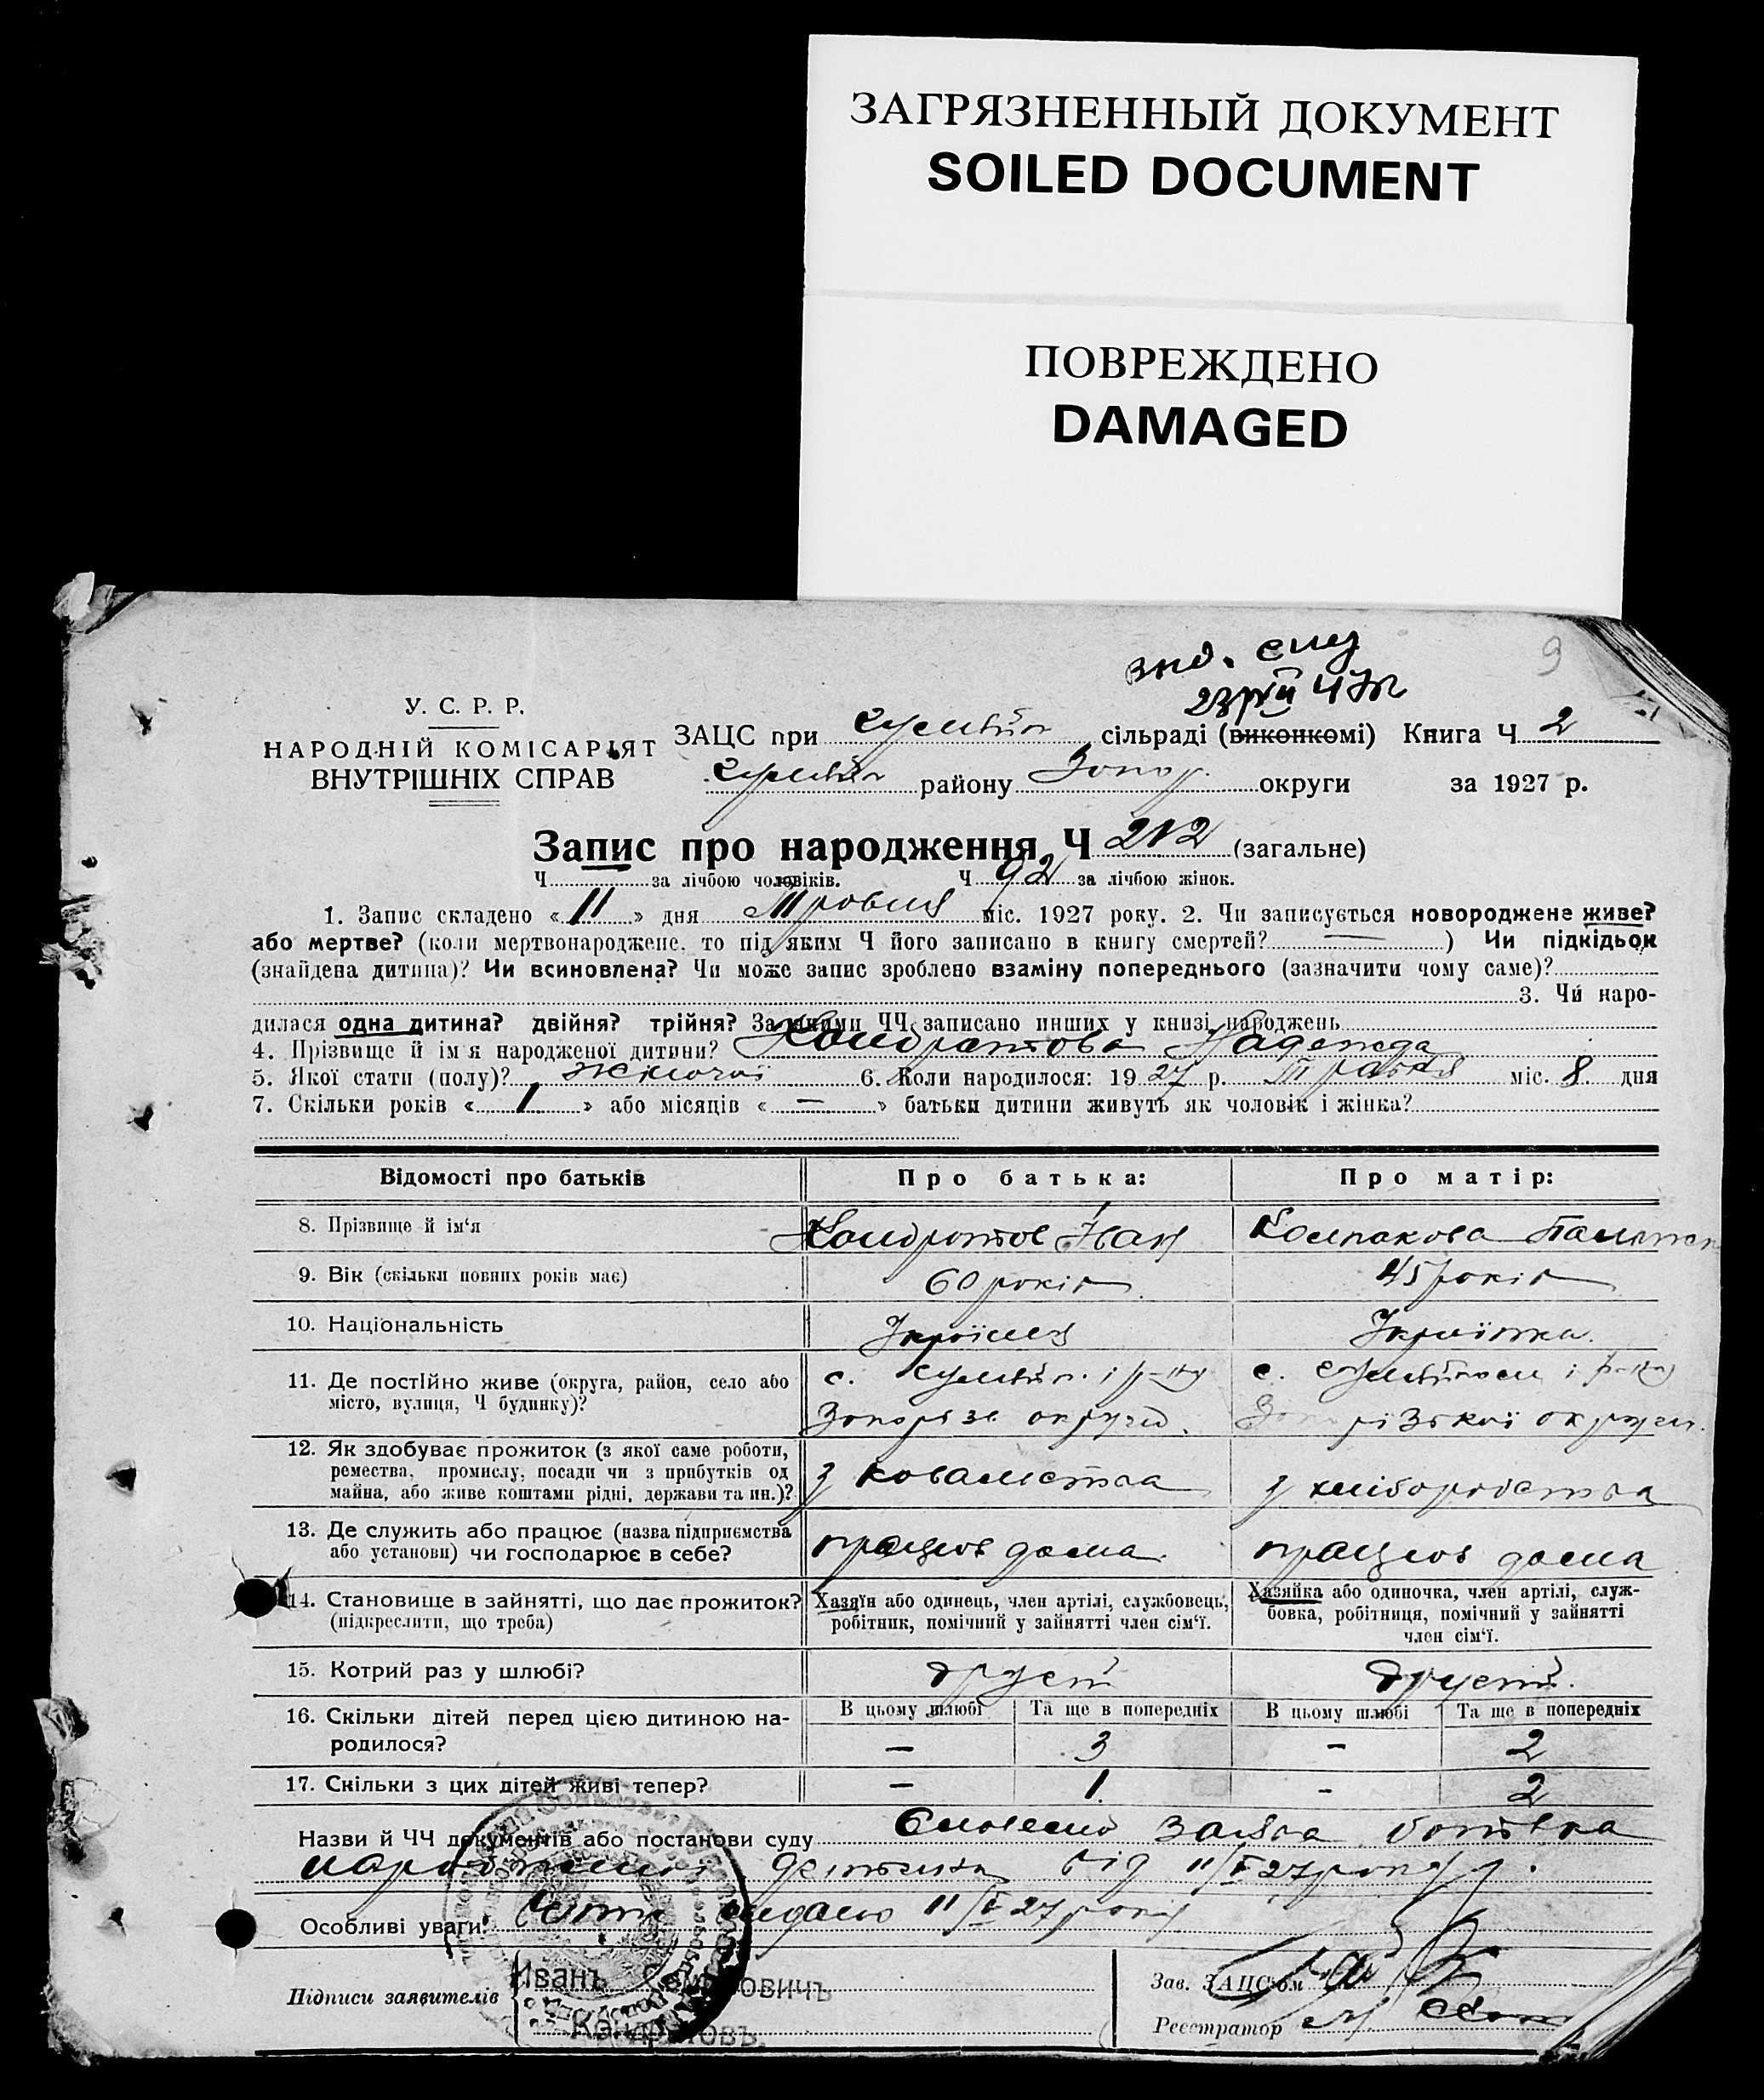 ЗАГРЯЗНЕННЫЙ ДОКУМЕНТ
SOILED DOCUMENT
ПОВРЕЖДЕНО
DAMAGED
9
У. С. Р. Р.
НАРОДНІЙ КОМІСАРІЯТ
ВНУТРІШНІХ СПРАВ
ЗАЦС при сільраді (виконкомі) Книга Ч 2
району Запор. округи за 1927 р.
Запис про народження Ч 212 (загальне)
Ч за лічбою чоловіків. Ч 92 за лічбою жінок.
1. Запис складено « 11 » дня Травня міс. 1927 року. 2. Чи записується новороджене живе?
або мертве? (коли мертвонароджене, то під яким Ч його записано в книгу смертей? — ) Чи підкідьок
(знайдена дитина)? Чи всиновлена? Чи може запис зроблено взаміну попереднього (зазначити чому саме)?
3. Чи наро-
дилася одна дитина? двійня? трійня? За якими ЧЧ записано инших у книзі народжень
4. Прізвище й ім'я народженої дитини? Кондратова Надежда
5. Якої стати (полу)? жіночої 6. Коли народилося: 19 27 р. Травня міс. 8 дня
7. Скільки років « 1 » або місяців « — » батьки дитини живуть як чоловік і жінка?
Відомості про батьків Про батька: Про матір:
8. Прізвище й ім'я Кондратов Іван Колпакова
9. Вік (скільки повних років має) 60 років 45 років
10. Національність Українец Українка.
11. Де постійно живе (округа, район, село або
місто, вулиця, Ч будинку)?
с. і р-ну
Запорізь округи.
с. і р-ну
Запорізької округи.
12. Як здобуває прожиток (з якої саме роботи,
ремества, промислу, посади чи з прибутків од
майна, або живе коштами рідні, держави та ин.)?
з ковальства
з хліборобства
13. Де служить або працює (назва підприємства
або установи) чи господарює в себе?
працює дома.
працює дома
14. Становище в зайнятті, що дає прожиток?
(підкреслити, що треба)
Хазяїн або одинець, член артілі, службовець,
робітник, помічний у зайнятті член сім'ї.
Хазяйка або одиночка, член артілі, служ-
бовка, робітниця, помічний у зайнятті
член сім'ї.
15. Котрий раз у шлюбі? другий другий.
16. Скільки дітей перед цією дитиною на-
родилося?
В цьому шлюбі Та ще в попередніх В цьому шлюбі Та ще в попередніх
— 3 — 2
17. Скільки з цих дітей живі тепер? — 1 - 2
Назви й ЧЧ документів або постанови суду Словесна заява батька
народження дитини від 11/V 27 року
Особливі уваги: видано 11/V 27 року
Підписи заявителів
Иванъ Семеновичъ
Кондратовъ.
Зав. ЗАЦС'ом
Реєстратор